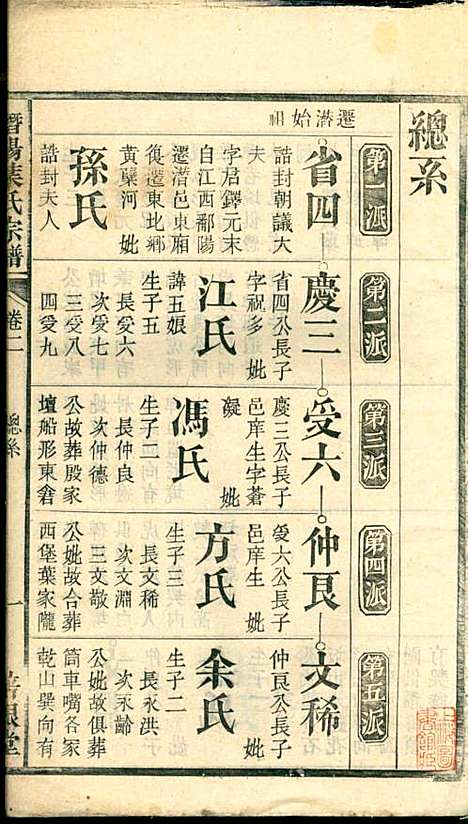 總系
第一派
遷潛始祖
省四
誥封朝議大
夫
字居鐸元末
自江西鄱陽
遷潛邑東廂
復遷東北鄉
黃蘗河 妣
孫氏
誥封夫人
第二派
慶三
省四公長子
字祝多 妣
江氏
諱五娘
生子五
長受六
次受七
三受八
四受九
第三派
受六
慶三公長子
邑庠生字蒼
凝 妣
馮氏
生子二
長仲良
次仲德
公故葬殷家
壇船形東倉
第四派
仲良
受六公長子
邑庠生 妣
方氏
生子三
長文稀
次文淵
三文敬
公妣故合葬
西堡葉家隴
第五派
文稀
仲良公長子
妣
余氏
生子二
長永洪
次永齡
公妣故俱葬
筒車嘴各家
乾山巽向有
葉氏宗譜
卷二
總系
一